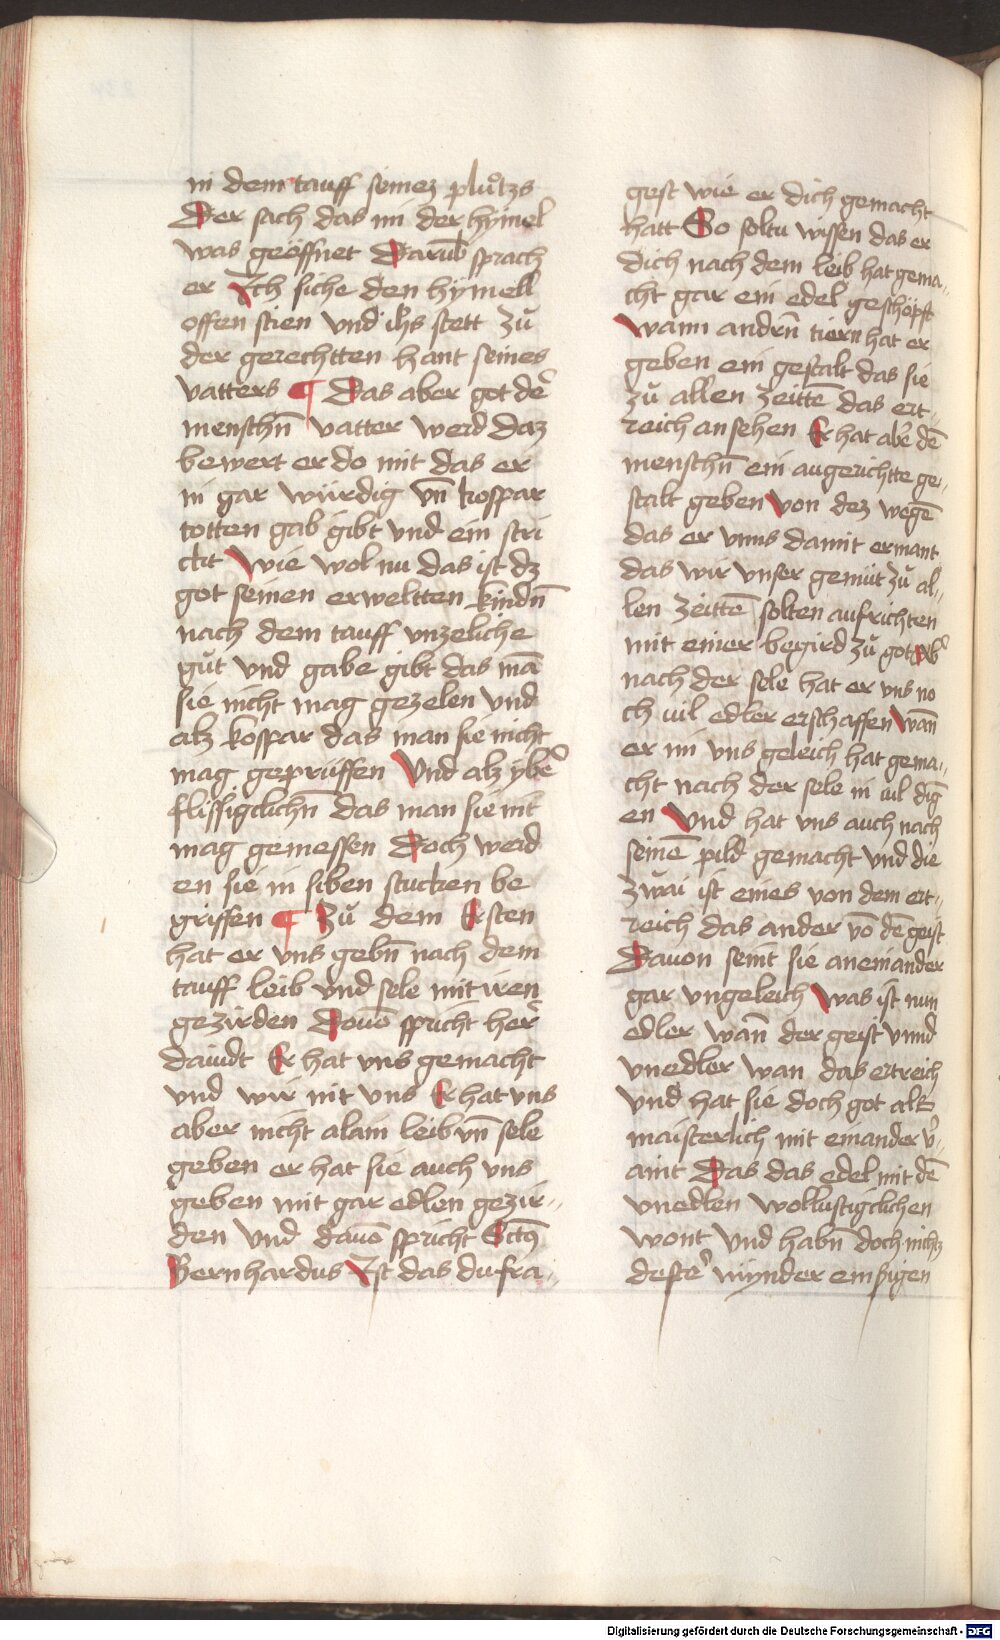 in dem tauff seinez pluͦtzs
Der sach das im der hymel
was geöffnet Darub sprach
er Ich siche den hymell
offen stien vnd ihs stett zů
der gerechtten hant seines
vatters ¶ Das aber got der
menschn̄ vatter werd daz
bewert er do mit das er
in gar würdig vn̄ kospar
totten gab gibt vnd ein stri
ckt Wie wol nu das ist dz
got seinen erweltten kindn̄
nach dem tauff vnzeliche
gůt vnd gabe gibt das mā
sie nicht mag gezelen vnd
alz kospar das man sie nicht
mag geprüffen Vnd alz yber
flissigclichn̄ das man sie nit
mag gemessen Doch werd
en sie in siben stucken be
griffen ¶ Zů dem Ersten
hat er vns gebn̄ nach dem
tauff leib vnd sele mit iren
gezirden Douō spricht her
dauidt Er hat vns gemacht
vnd wir nit vns Er hat vns
aber nicht alain leib vn̄ sele
geben er hat sie auch vns
geben mit gar edlen gezir-
den vnd dauō spricht Sctūs
Bernhardus Ist das du fra-
gest wie er dich gemacht
hatt So soltu wissen das er
dich nach dem leib hat gema-
cht gar ein edel geschöpft
Wann andrn̄ tiern hat er
geben ein gestalt das sie
zů allen zeittē das ert-
reich ansehen Er hat aber dē
menschn̄ ein augerichtte ge-
stalt geben von dez wegē
das er vnns damit ermant
das wir vnser gemüt zů al-
len zeittē solten aufrichten
mit einer begird zů got
nach der sele hat er vns no
ch vil edler erschaffen Wan̄
er im vns geleich hat gema-
cht nach der sele in vil dīg
en Vnd hat vns auch nach
seinē pild gemacht vnd die
zwai ist eines von dem ert-
reich das ander vō dē geist
Dauon seint sie aneinander
gar vngeleich Was ist nun
edler wan̄ der geist vnnd
vnedler wan das ertreich
vnd hat sie doch got als
maisterlich mit einander v̄-
aint Das das edel mit dē
vnedlen wollustigclichen
wont vnd habn̄ doch nichtz
dester mynder einßigen